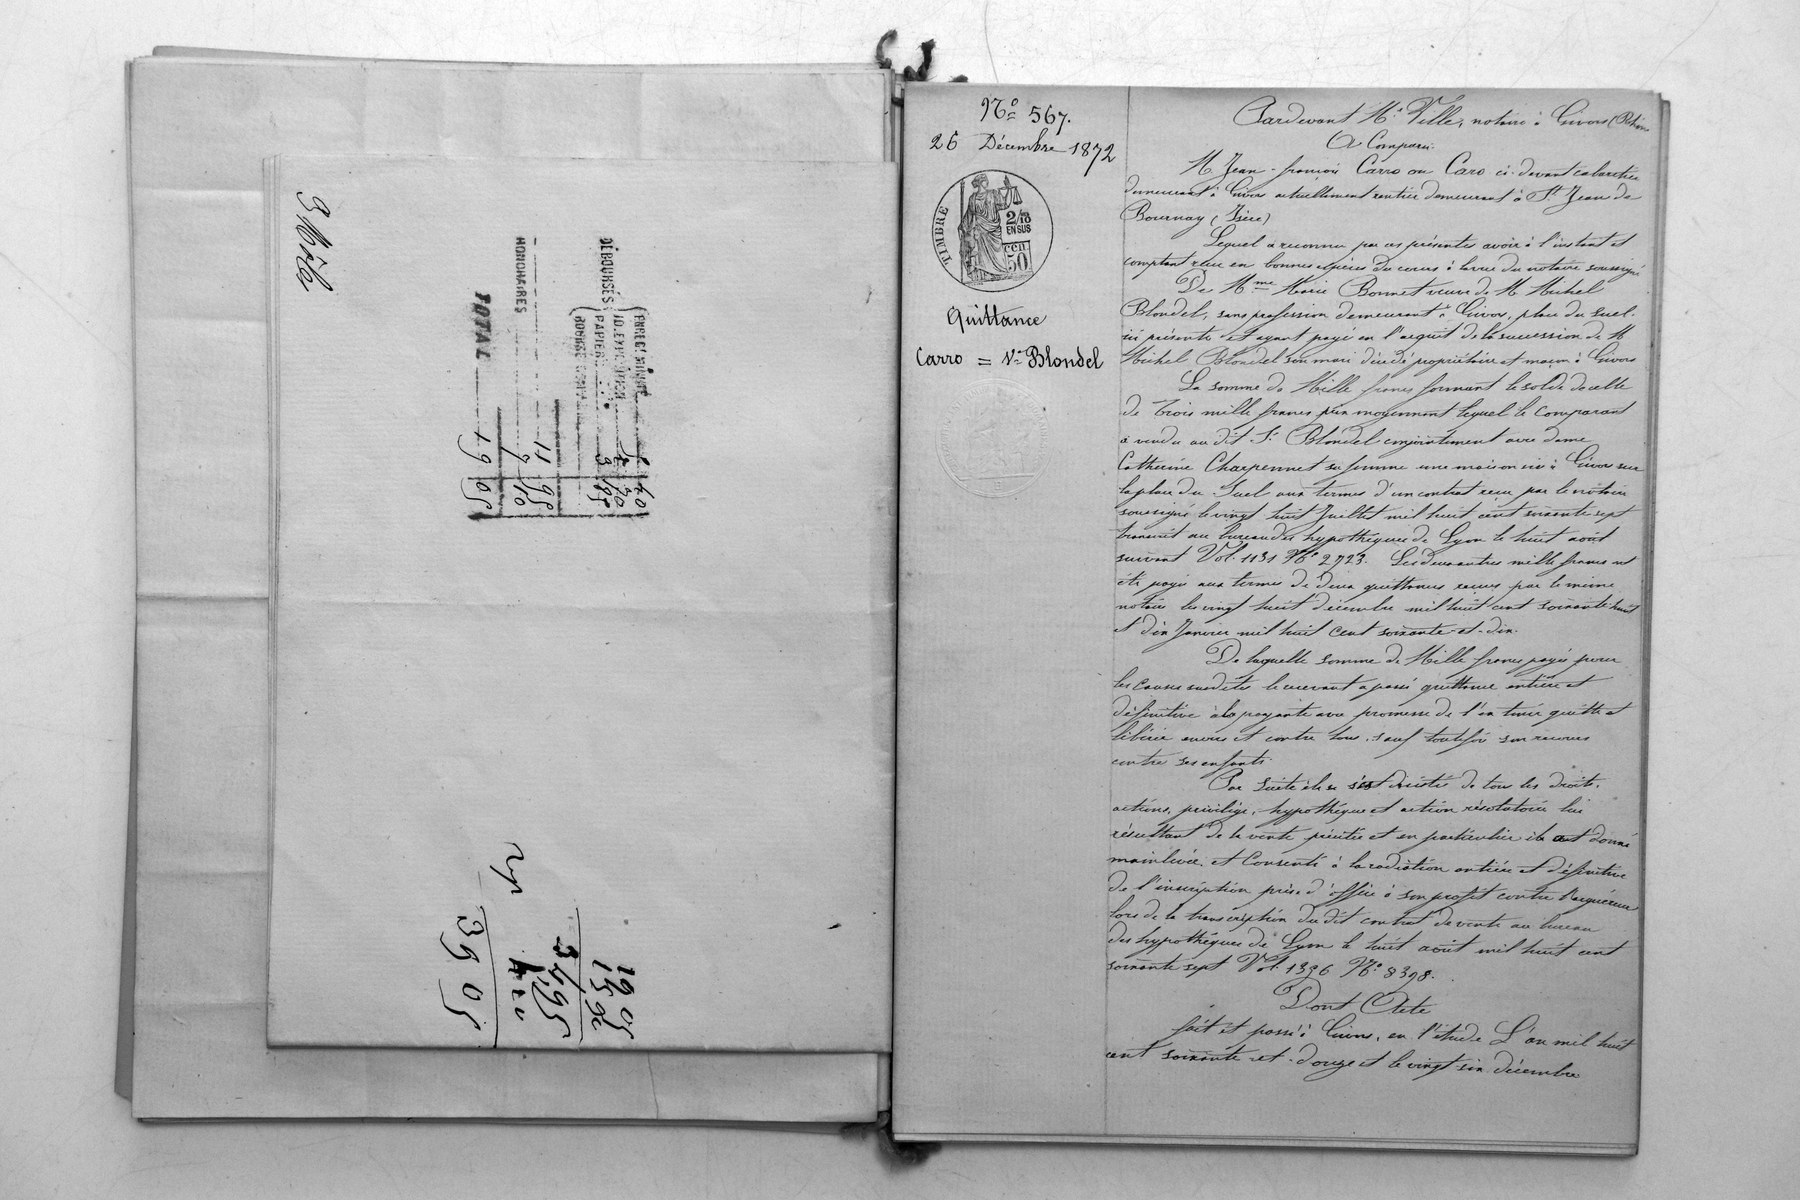 3 Rôle
ENREGISTREMENT
ID. EXPÉDITION
DÉBOURSÉS
PAPIER
HONORAIRES
11 95
7 10
TOTAL
19 05
19 05
15 90
34 95
39 05
N° 567.
26 Décembre 1872
TIMBRE
2/10
EN SUS
50 CEN
Quittance
Carro = Ve Blondel
Pardevant Me Ville, notaire à Givors (Rhône
A Comparu:
M. Jean-françois Carro ou Caro ci-devant cabaretier
demeurant à Givors actuellement rentier demeurant à St Jean de
Bournay (Isère)
Lequel a reconnu par ces présentes avoir à l'instant et
comptant reçu en bonnes espèces du cours à la vue du notaire soussigné
De Mme Marie Bonnet veuve de M. Michel
Blondel, sans profession demeurant à Givors, place du Suel.
ici présente et ayant payé en l'acquit de la succession de M.
Michel Blondel son mari décédé propriétaire et maçon à Givors
La somme de Mille francs formant le solde de celle
de Trois mille francs prix moyennant lequel le comparant
a vendu au dit Sr Blondel conjointement avec dame
Catherine Charpennet sa femme une maison sise à Givors sur
la place du Suel aux termes d'un contrat reçu par le notaire
soussigné le vingt huit Juillet mil huit cent soixante sept
transcrit au bureau des hypothèques de Lyon le huit août
suivant Vol. 1131 N° 2723. Les deux autres mille francs ont
été payés aux termes de deux quittances reçues par le même
notaire les vingt huit décembre mil huit cent soixante huit
et dix Janvier mil huit Cent soixante-et-dix.
De laquelle somme de Mille francs payés pour
les causes susdites le recevant a passé quittance entière et
définitive à la payante avec promesse de l'en tenir quitte et
libérée envers et contre tous, sauf toutefois son recours
contre ses enfants.
Par suite il s'est désisté de tous les droits,
actions, privilège, hypothèque et action résolutoire lui
résultant de la vente précitée et en particulier il a donné
mainlevée et Consenti à la radiation entière et définitive
de l'inscription prise d'office à son profit contre l'acquéreur
lors de la transcription du dit contrat de vente au bureau
des hypothèques de Lyon le huit août mil huit cent
soixante sept Vol. 1396 N° 8398.
Dont Acte
fait et passé à Givors, en l'étude L'an mil huit
cent soixante-et-douze et le vingt six décembre